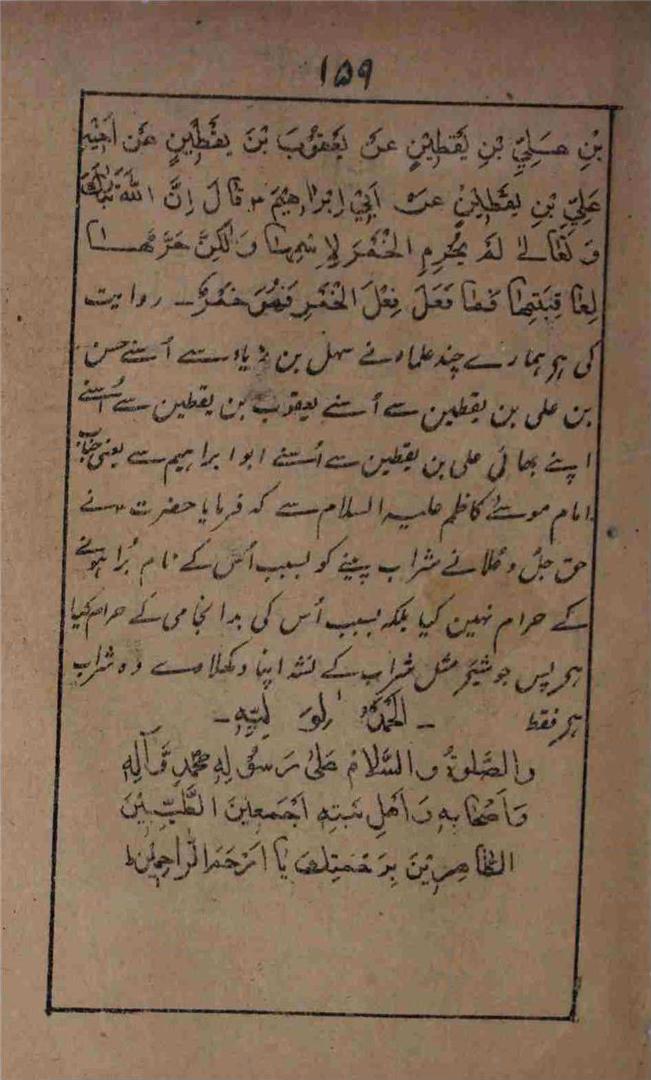 ۱۵۹
بْنِ عَلِيِّ بْنِ يَقْطِيْنٍ عَنْ يَعْقُوْبَ بْنَ يَقْطِيْنٍ عَنْ اَخِيْهِ
عَلِيِّ بْنِ يَقْطِيْنٍ عَنْ اَبِيْ اِبْرَاهِيْمَ قَالَ اِنَّ اللّٰهَ تَبَارَكَ
وَ تَعَالٰى لَمْ يُحَرِّمِ الْخَمْرَ لِاِسْمِهَا وَ لٰكِنْ حَرَّمَهَا
لِعَاقِبَتِهَا فَمَا فَعَلَ فِعْلَ الْخَمْرِ فَهُوَ خَمْرٌ۔ روایت
کی ہر ہمارے چند علماء نے سہل بن زیاد سے اُسنے حسن
بن علی بن یقطین سے اُسنے یعقوب بن یقطین سے اُسنے
اپنے بھائی علی بن یقطین سے اُسنے ابو ابراہیم سے یعنی جناب
امام موسےٰ کاظم علیہ السلام سے کہ فرمایا حضرت نے
حق جل و علا نے شراب پینے کو بسبب اُس کے نام بُرا ہونے
کے حرام نہین کیا بلکہ بسبب اُس کی بد انجامی کے حرام کیا
ہر پس جو شئے مثل شراب کے نشہ اپنا دکھلاوے وہ شراب
ہر فقط
والصَّلٰوةُ والسَّلَامُ عَلٰى رَسُوْلِهِ مُحَمَّدٍ وَّاٰلِهٖ
وَاَصْحَابِهٖ وَ اَهْلِ بَيْتِهٖ اَجْمَعِيْنَ الطَّيِّبِيْنَ
الطَّاهِرِيْنَ بِرَحْمَتِكَ يَا اَرْحَمَ الرَّاحِمِيْنَ